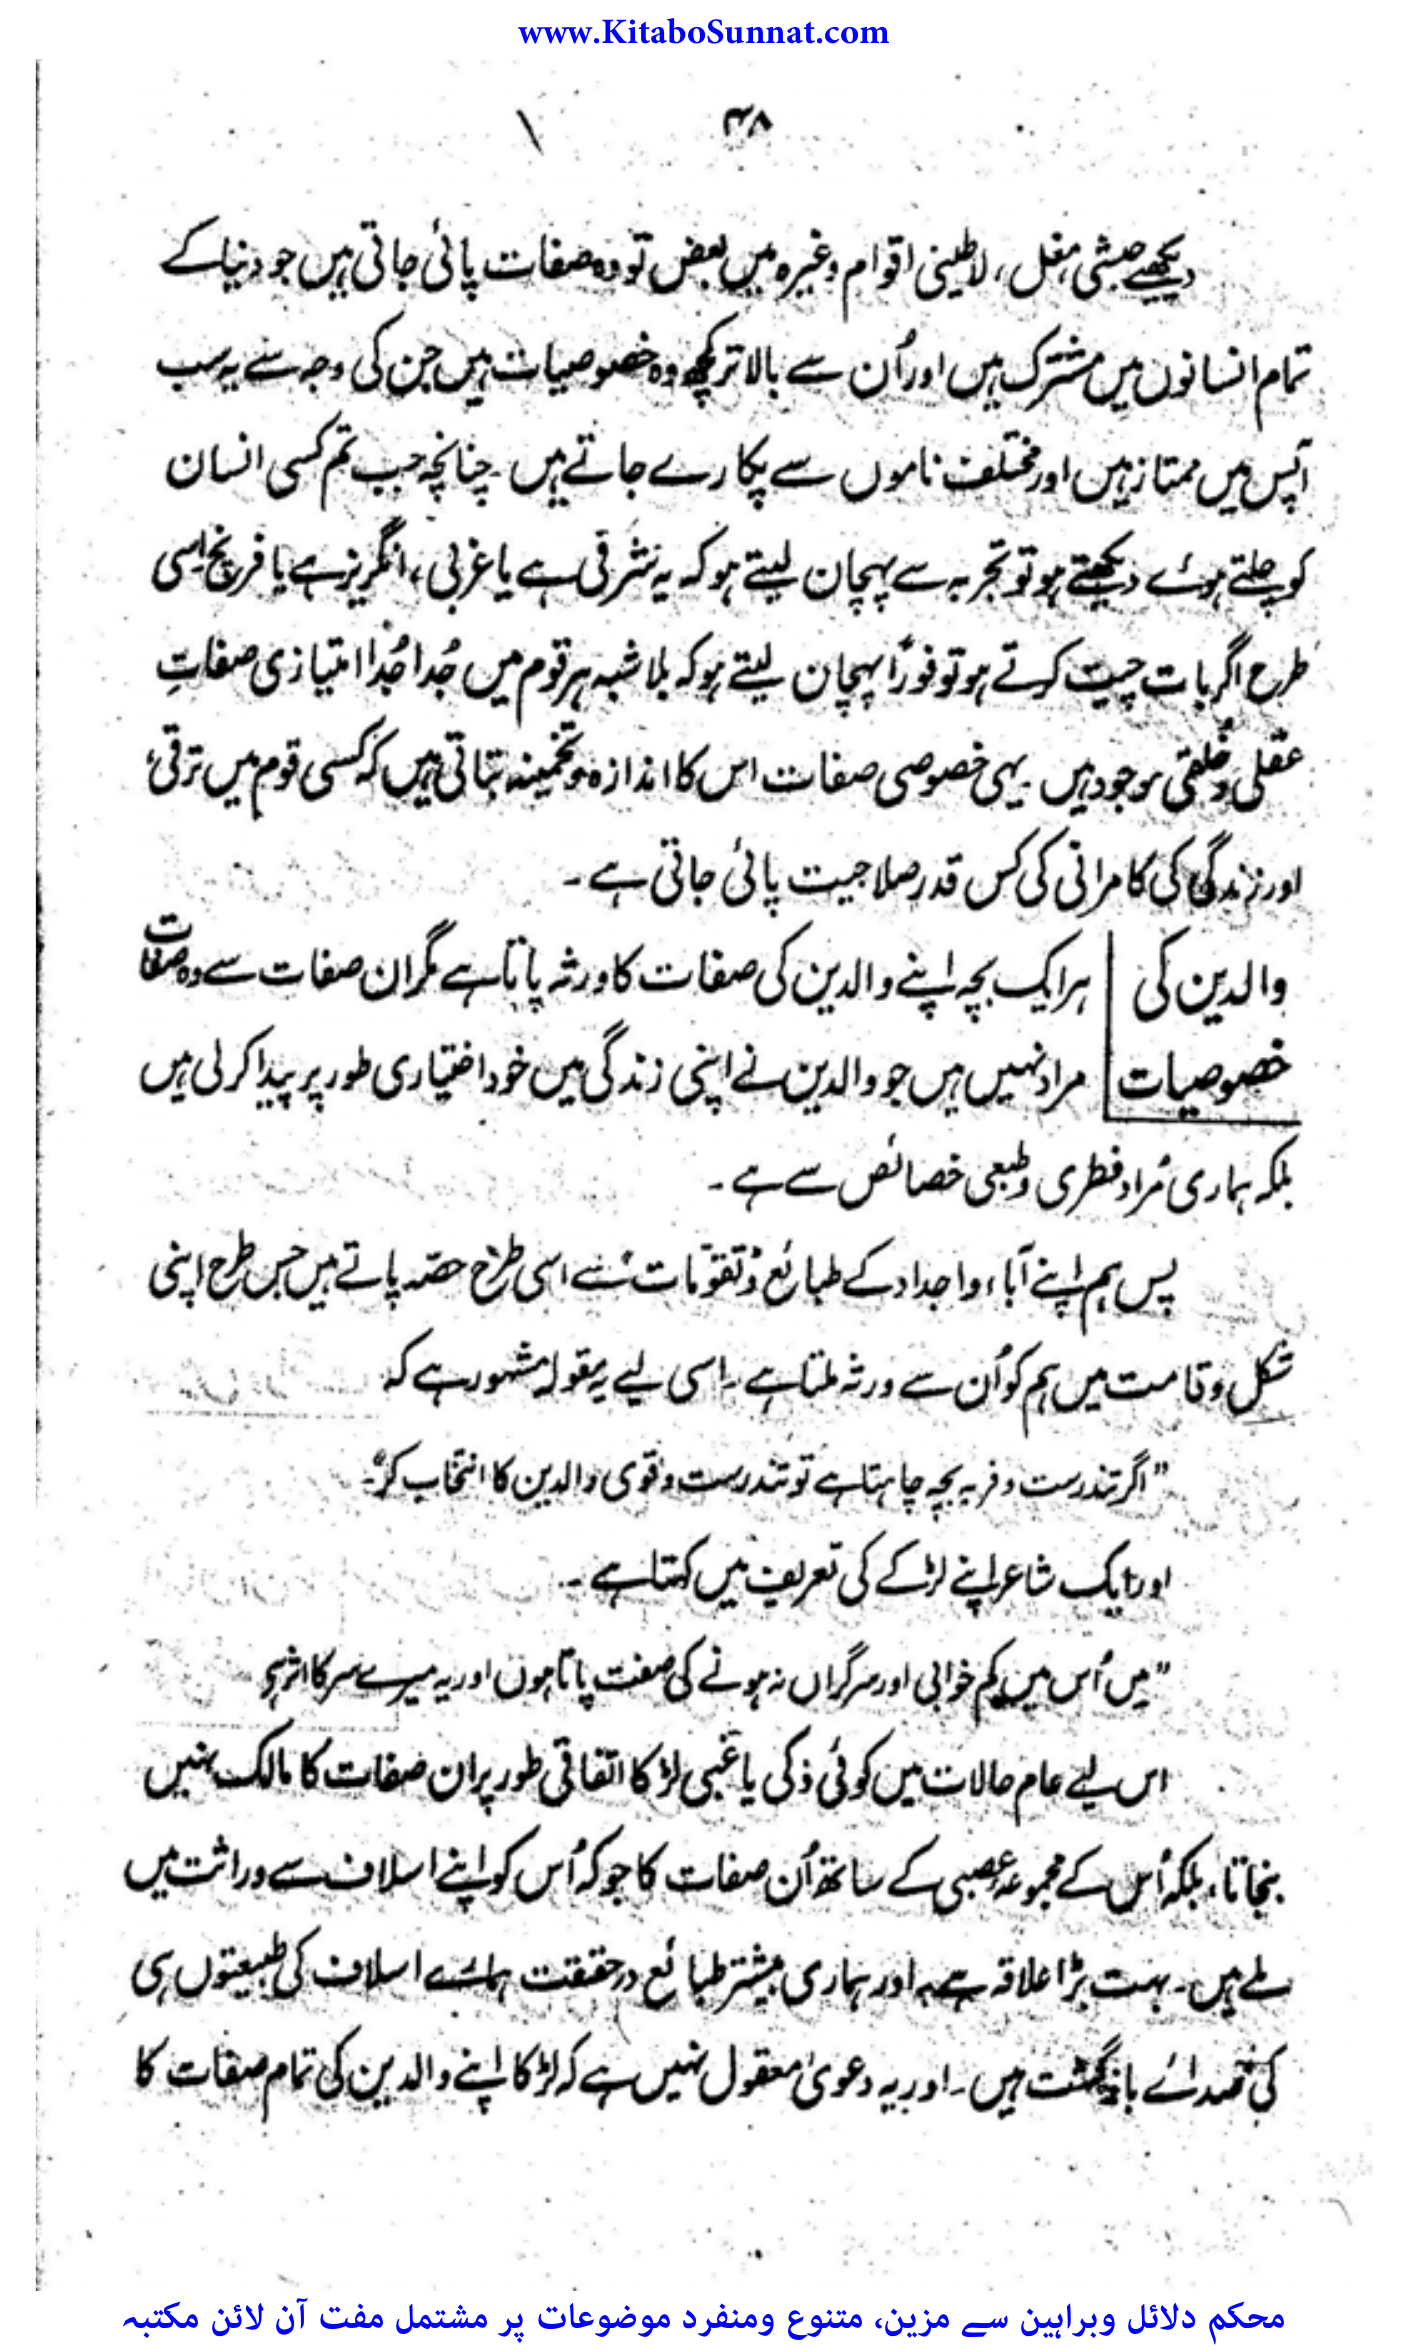 www.KitaboSunnat.com
۴۸
دیکھیے حبشی، مغل، لاطینی اقوام وغیرہ میں بعض تو وہ صفات پائی جاتی ہیں جو دنیا کے
تمام انسانوں میں مشترک ہیں اور اُن سے بالاتر کچھ وہ خصوصیات ہیں جن کی وجہ سے یہ سب
آپس میں ممتاز ہیں اور مختلف ناموں سے پکارے جاتے ہیں۔ چنانچہ جب تم کسی انسان
کو چلتے ہوئے دیکھتے ہو تو تجربہ سے پہچان لیتے ہو کہ یہ شرقی ہے یا غربی، انگریز ہے یا فرنچ اِسی
طرح اگر بات چیت کرتے ہو تو فوراً پہچان لیتے ہو کہ بلاشبہ ہر قوم میں جُدا جُدا امتیازی صفاتِ
عقلی و خُلقی موجود ہیں۔ یہی خصوصی صفات اس کا اندازہ و تخمینہ بتاتی ہیں کہ کسی قوم میں ترقی
اور زندگی کی کامرانی کی کس قدر صلاحیت پائی جاتی ہے۔
والدین کی ہر ایک بچہ اپنے والدین کی صفات کا ورثہ پاتا ہے مگر ان صفات سے وہ صفات
خصوصیات مراد نہیں ہیں جو والدین نے اپنی زندگی میں خود اختیاری طور پر پیدا کر لی ہیں
بلکہ ہماری مُراد فطری و طبعی خصائص سے ہے۔
پس ہم اپنے آباء و اجداد کے طبائع و تقوّمات سے اسی طرح حصّہ پاتے ہیں جس طرح اپنی
شکل و قامت میں ہم کو اُن سے ورثہ ملتا ہے۔ اسی لیے یہ مقولہ مشہور ہے کہ
”اگر تندرست و فربہ بچہ چاہتا ہے تو تندرست و قوی والدین کا انتخاب کر“۔
اور ایک شاعر اپنے لڑکے کی تعریف میں کہتا ہے۔
”میں اُس میں کم خوابی اور سرگراں نہ ہونے کی صفت پاتا ہوں اور یہ میرے سر کا اثر ہی
اس لیے عام حالات میں کوئی ذکی یا غبی لڑکا اتفاقی طور پر ان صفات کا مالک نہیں
بنجاتا، بلکہ اُس کے مجموعہ عصبی کے ساتھ اُن صفات کا جو کہ اُس کو اپنے اسلاف سے وراثت میں
ملے ہیں۔ بہت بڑا علاقہ ہے، اور ہماری بیشتر طبائع درحقیقت ہمارے اسلاف کی طبیعتوں ہی
کی صدائے بازگشت ہیں۔ اور یہ دعویٰ معقول نہیں ہے کہ لڑکا اپنے والدین کی تمام صفات کا
محکم دلائل وبراہین سے مزین، متنوع ومنفرد موضوعات پر مشتمل مفت آن لائن مکتبہ